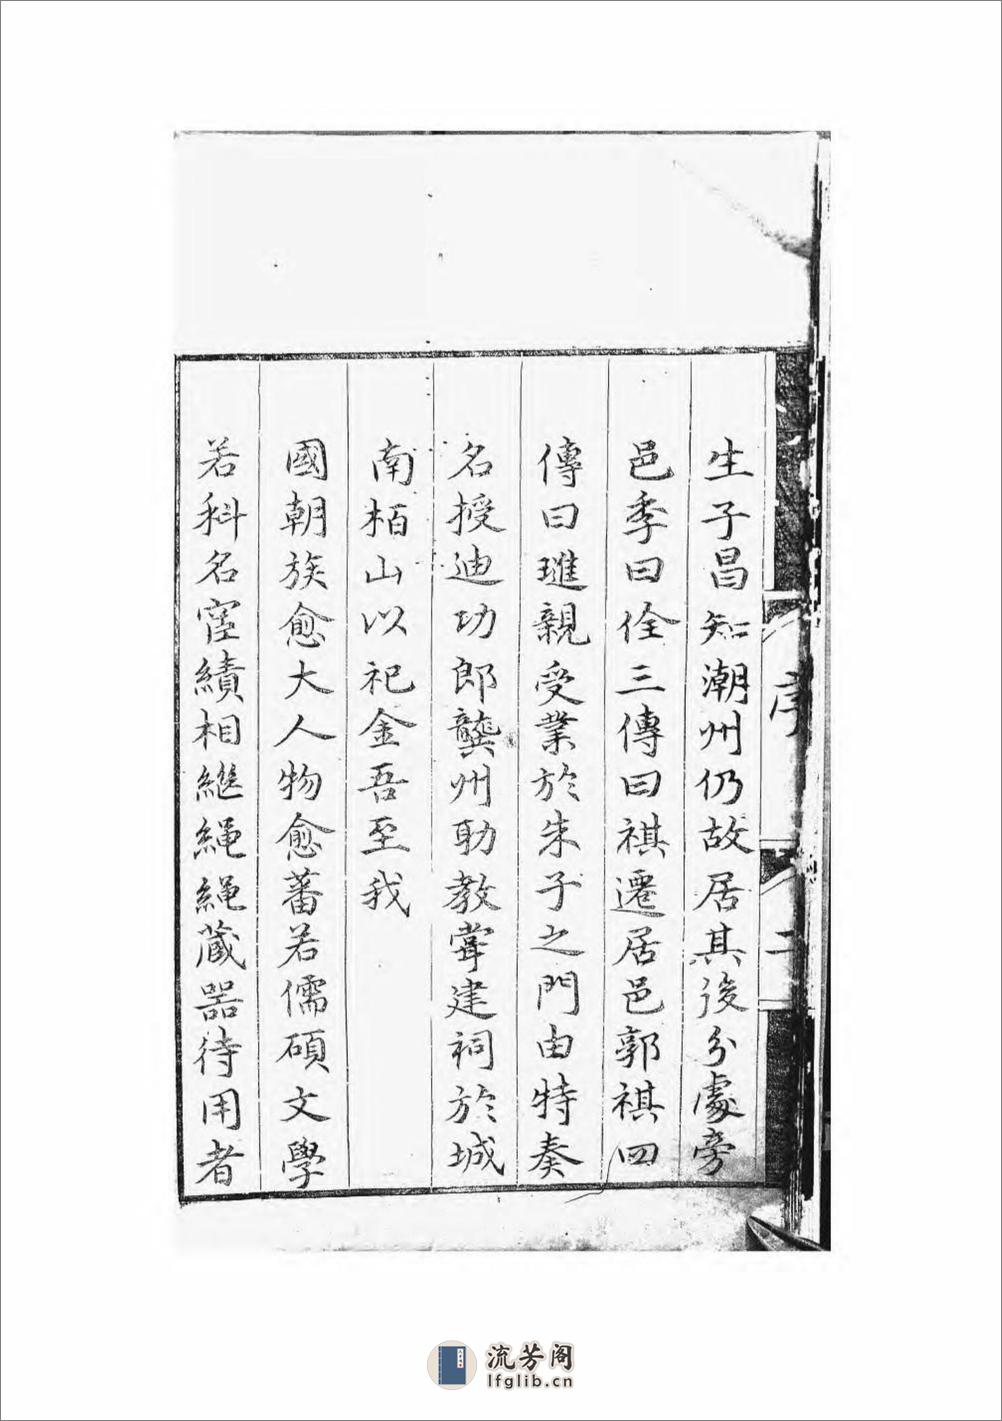 生子昌知潮州仍故居其後分處旁
邑季曰佺三傳曰祺遷居邑郭祺四
傳曰璡親受業於朱子之門由特奏
名授迪功郎龔州助教嘗建祠於城
南栢山以祀金吾至我
國朝族愈大人物愈蕃若儒碩文學
若科名宦績相繼繩繩蔵器待用者
序
二
流芳阁
lfglib.cn